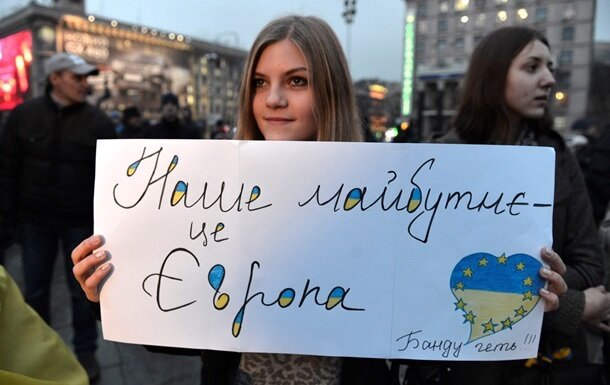 Наше майбутнє -
це
Європа
Банду геть!!!